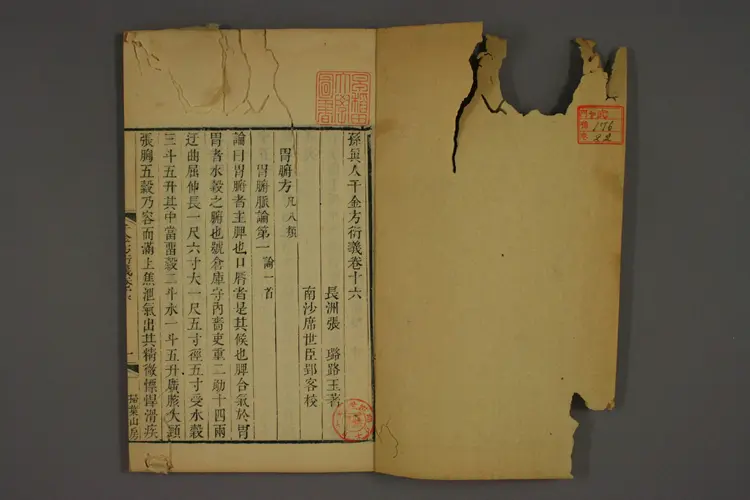 孫真人千金方衍義卷十六
長洲張 璐路玉著
南沙席世臣郢客校
胃腑方凡八類
胃腑脈論第一 論一首
論曰胃腑者主脾也口唇者是其候也脾合氣於胃
胃者水穀之腑也號倉庫守內嗇吏重二觔十四兩
迂曲屈伸長二尺六寸大一尺五寸徑五寸受水穀
三斗五升其中當畱穀二斗水一斗五升廣胲大頸
張胸五穀乃容而滿上焦泄氣出其精微慓悍滑疾
一
掃葉山房
176
22